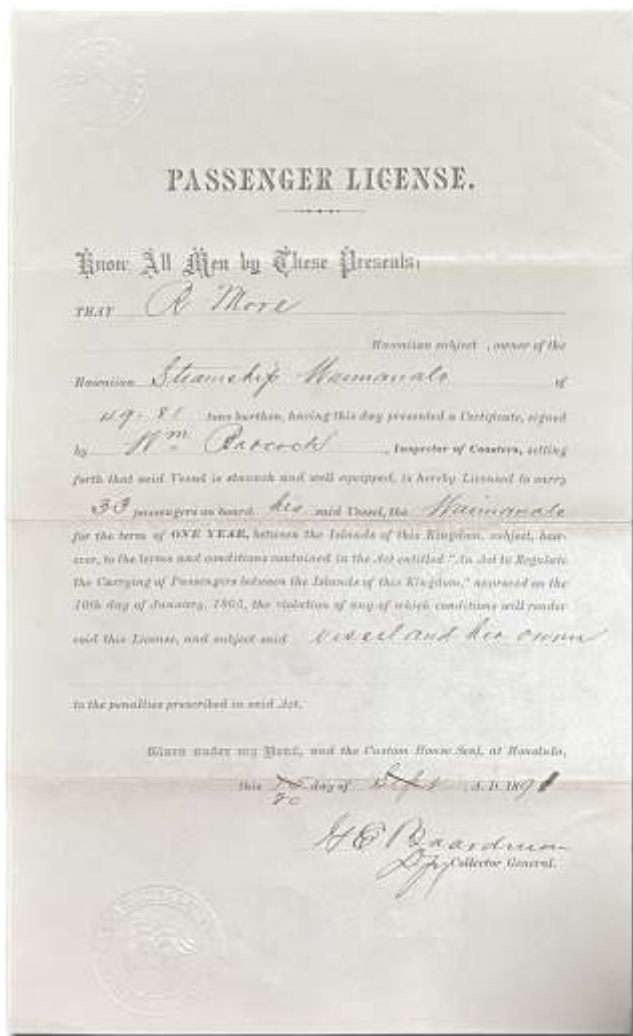 PASSENGER LICENSE.
Know All Men by These Presents;
THAT R More
Hawaiian subject, owner of the
Hawaiian Steamship Waimanalo of
49-81 tons burthen, having this day presented a Certificate, signed
by Wm Babcock, Inspector of Coasters, setting
forth that said Vessel is staunch and well equipped, is hereby Licensed to carry
33 passengers on board her said Vessel, the Waimanalo
for the term of ONE YEAR, between the Islands of this Kingdom, subject, how-
ever, to the terms and conditions contained in the Act entitled "An Act to Regulate
the Carrying of Passengers between the Islands of this Kingdom," approved on the
10th day of January, 1865, the violation of any of which conditions will render
void this License, and subject said vessel and her owner
to the penalties prescribed in said Act.
Given under my Hand, and the Custom House Seal, at Honolulu,
this day of Sept A. D. 1891
G E Boardman
Dpy Collector General.